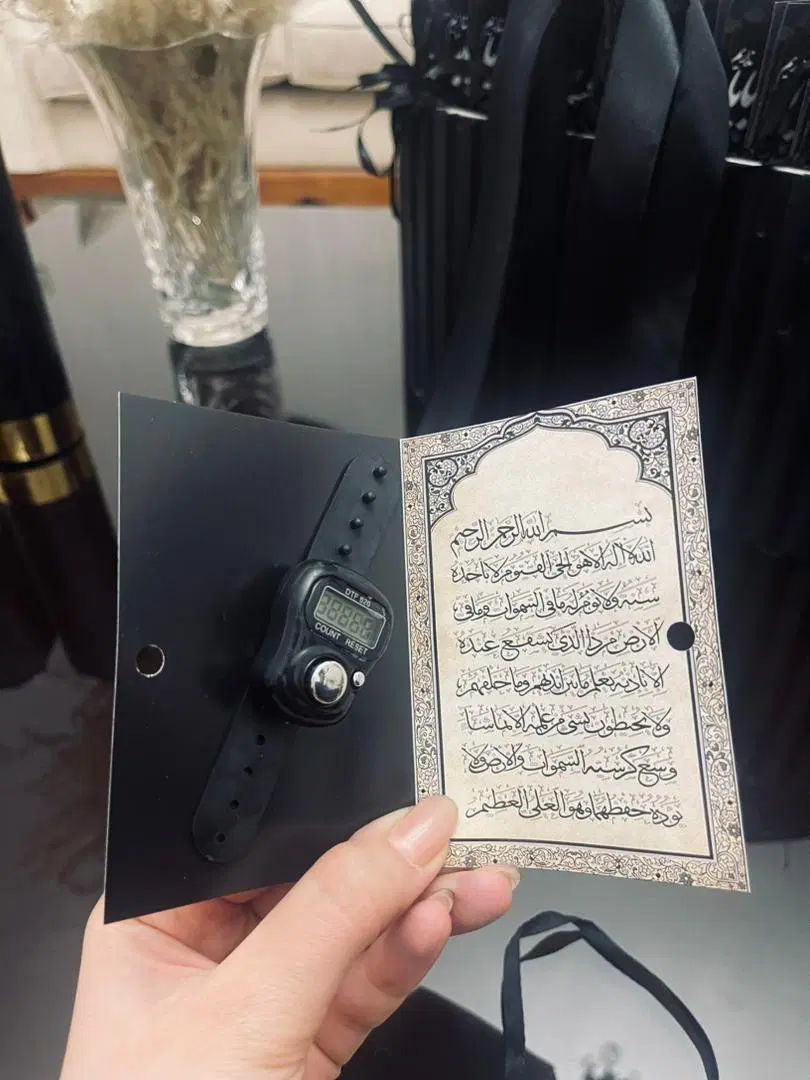 COUNT RESET
بسم الله الرحمن الرحيم
الله لا اله الا هو الحي القيوم لا تاخذه
سنة ولا نوم له ما في السموات وما في
الارض من ذا الذي يشفع عنده
الا باذنه يعلم ما بين ايديهم وما خلفهم
ولا يحيطون بشيء من علمه الا بما شاء
وسع كرسيه السموات والارض ولا
يؤده حفظهما وهو العلي العظيم